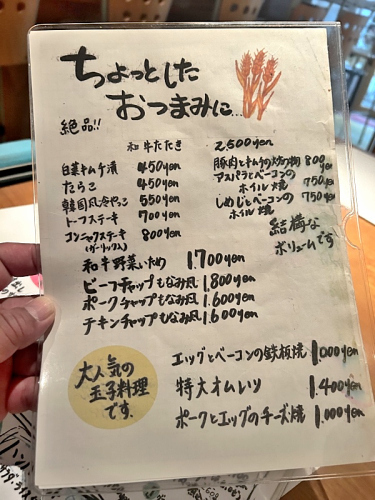 ちょっとした
おつまみに…
絶品!!
和牛たたき 2,500yen
白菜キムチ漬 450yen
たらこ 450yen
韓国風冷やっこ 550yen
トーフステーキ 700yen
コンニャクステーキ 800yen
(ガーリック入)
豚肉とキムチの炒め物 800yen
アスパラとベーコンの
ホイル焼 750yen
しめじとベーコンの
ホイル焼 750yen
結構な
ボリュームです
和牛野菜いため 1,700yen
ビーフチャップもなみ風 1,800yen
ポークチャップもなみ風 1,600yen
チキンチャップもなみ風 1,600yen
大人気の
玉子料理
です。
エッグとベーコンの鉄板焼 1,000yen
特大オムレツ 1,400yen
ポークとエッグのチーズ焼 1,000yen